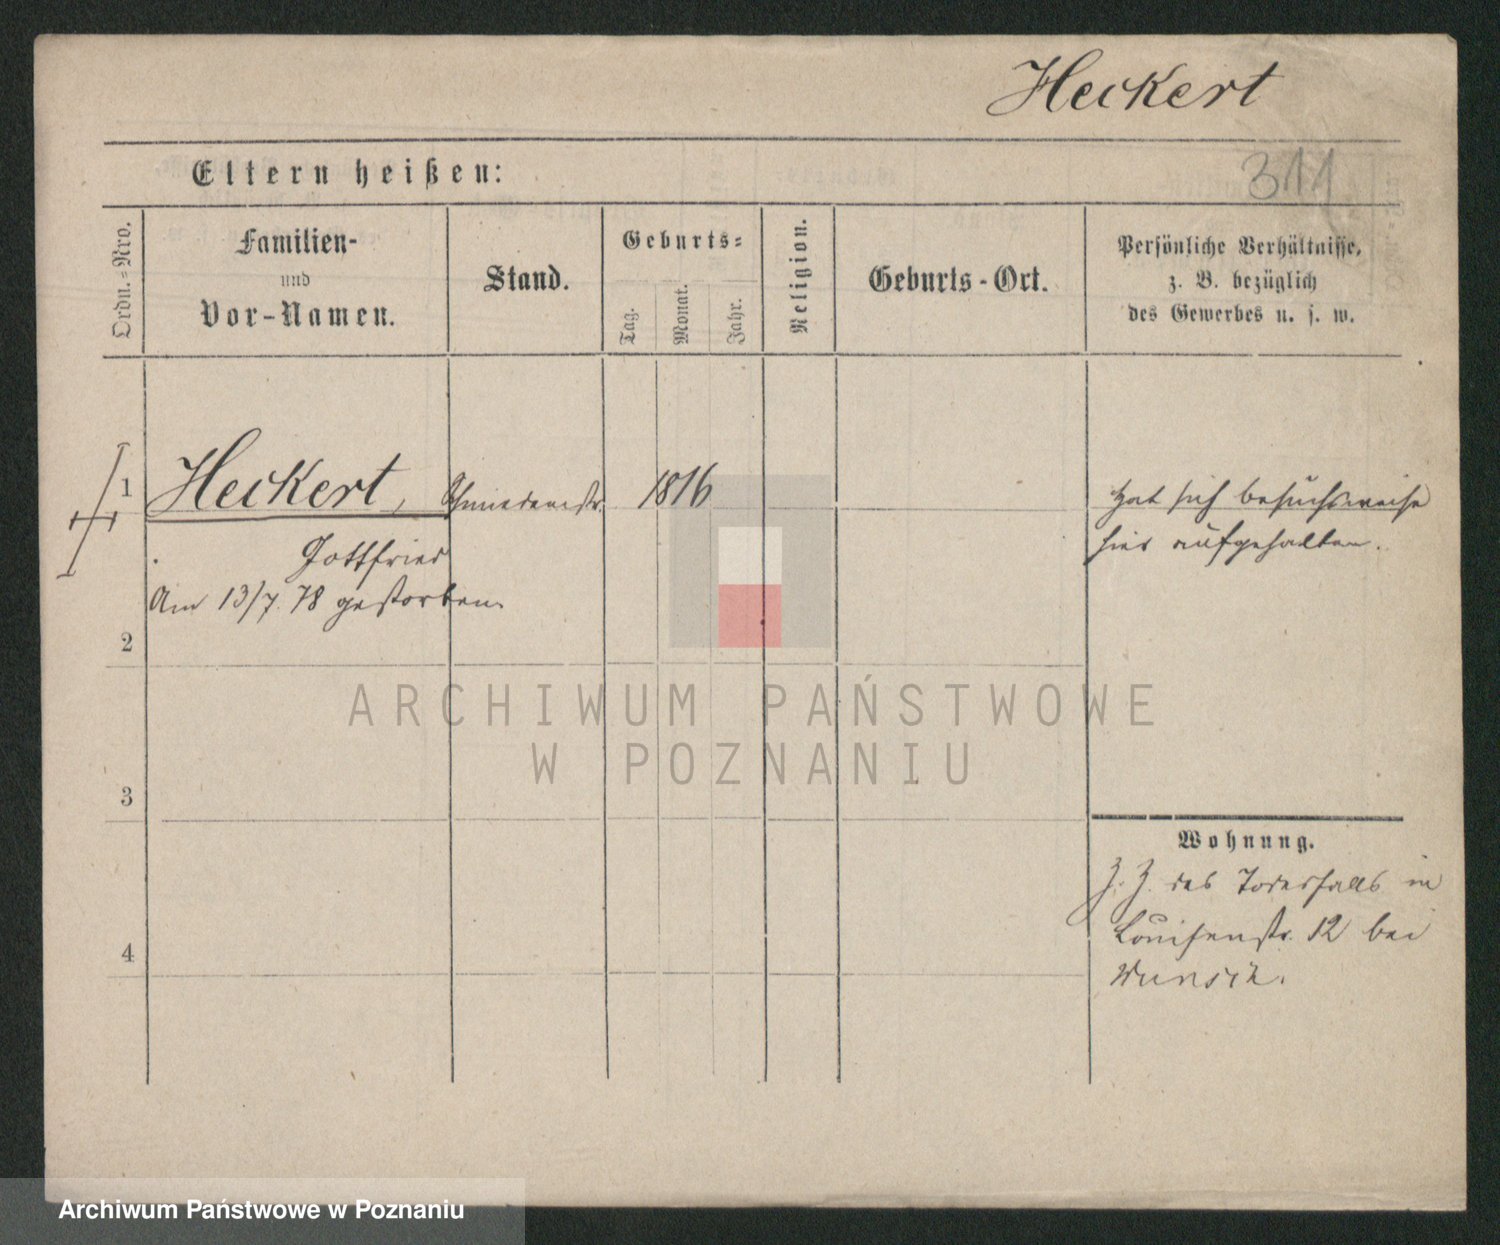 Heckert
311
Eltern heißen:
Ordn.-Nro.
Familien-
und
Vor-Namen.
Stand.
Geburts-
Tag.
Monat.
Jahr.
Religion.
Geburts-Ort.
Persönliche Verhältnisse,
z. B. bezüglich
des Gewerbes u. s. w.
1 Heckert, Schmiedemstr. 1816
Gottfried
Am 13/7. 78 gestorben.
Hat sich besuchsweise
hier aufgehalten.
2
3
4
Wohnung.
Z. Z. des Todesfalls in
Louisenstr. 12 bei
Wunsch.
ARCHIWUM PAŃSTWOWE
W POZNANIU
Archiwum Państwowe w Poznaniu